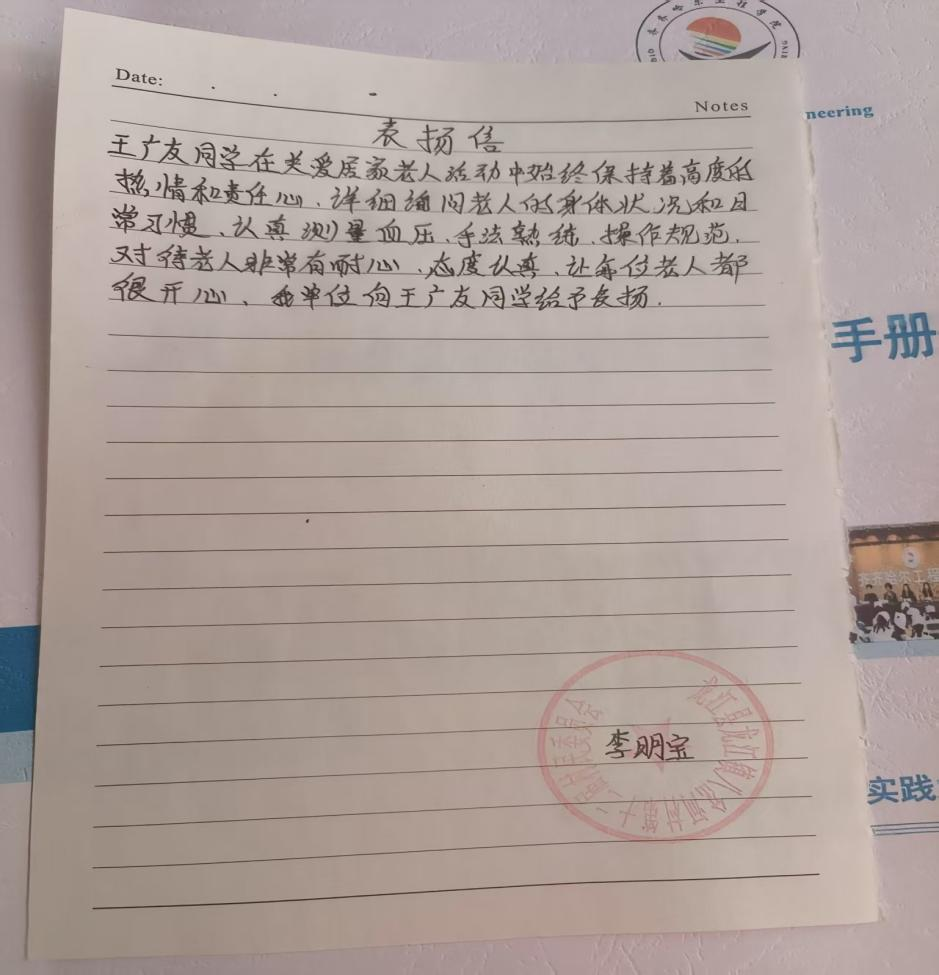 齐齐哈尔工程学院
neering
Date:
Notes
表扬信
王广友同学在关爱居家老人活动中始终保持着高度的
热情和责任心、详细询问老人的身体状况和日
常习惯、认真测量血压、手法熟练、操作规范、
对待老人非常有耐心、态度认真、让每位老人都
很开心、我单位向王广友同学给予表扬.
手册
齐齐哈尔工程
李明宝
实践